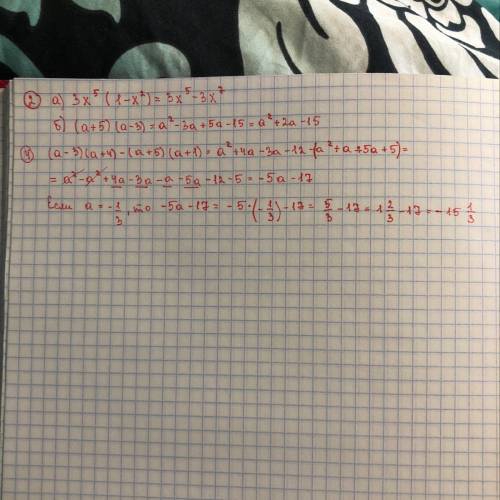 ② а) 3x⁵ (1-x²) = 3x⁵-3x⁷
б) (a+5)(a-3) = a²-3a+5a-15 = a²+2a-15
④ (a-3)(a+4)-(a+5)(a+1) = a²+4a-3a-12-(a²+a+5a+5) =
= a²-a²+4a-3a-a-5a-12-5 = -5a-17
Если a = -1/3, то -5a-17 = -5·(-1/3)-17 = 5/3-17 = 1 2/3-17 = -15 1/3